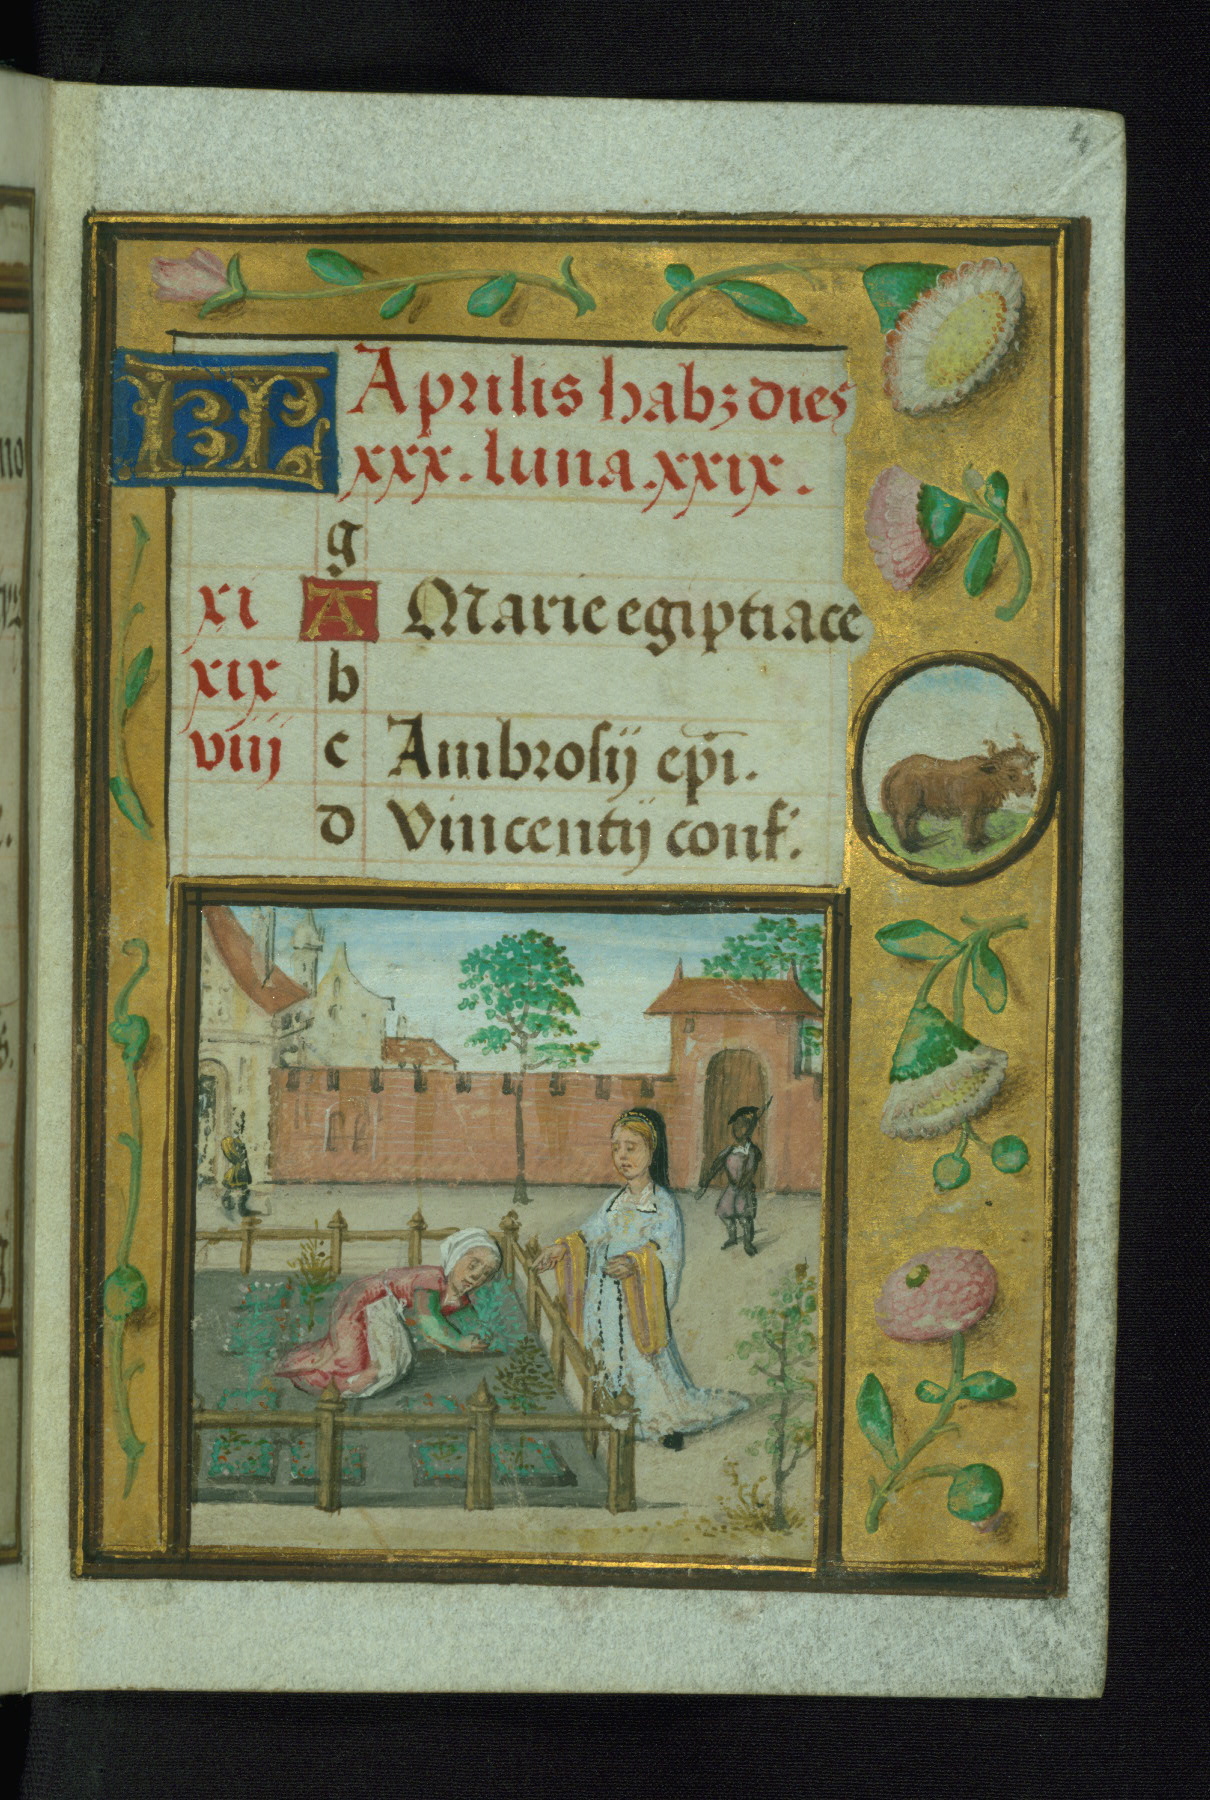 KL Aprilis habꝫ dies
xxx. luna .xxix.
g
xi A Marie egiptiace
xix b
viij c Ambrosij ep̅i.
d Vincentij conf.
4